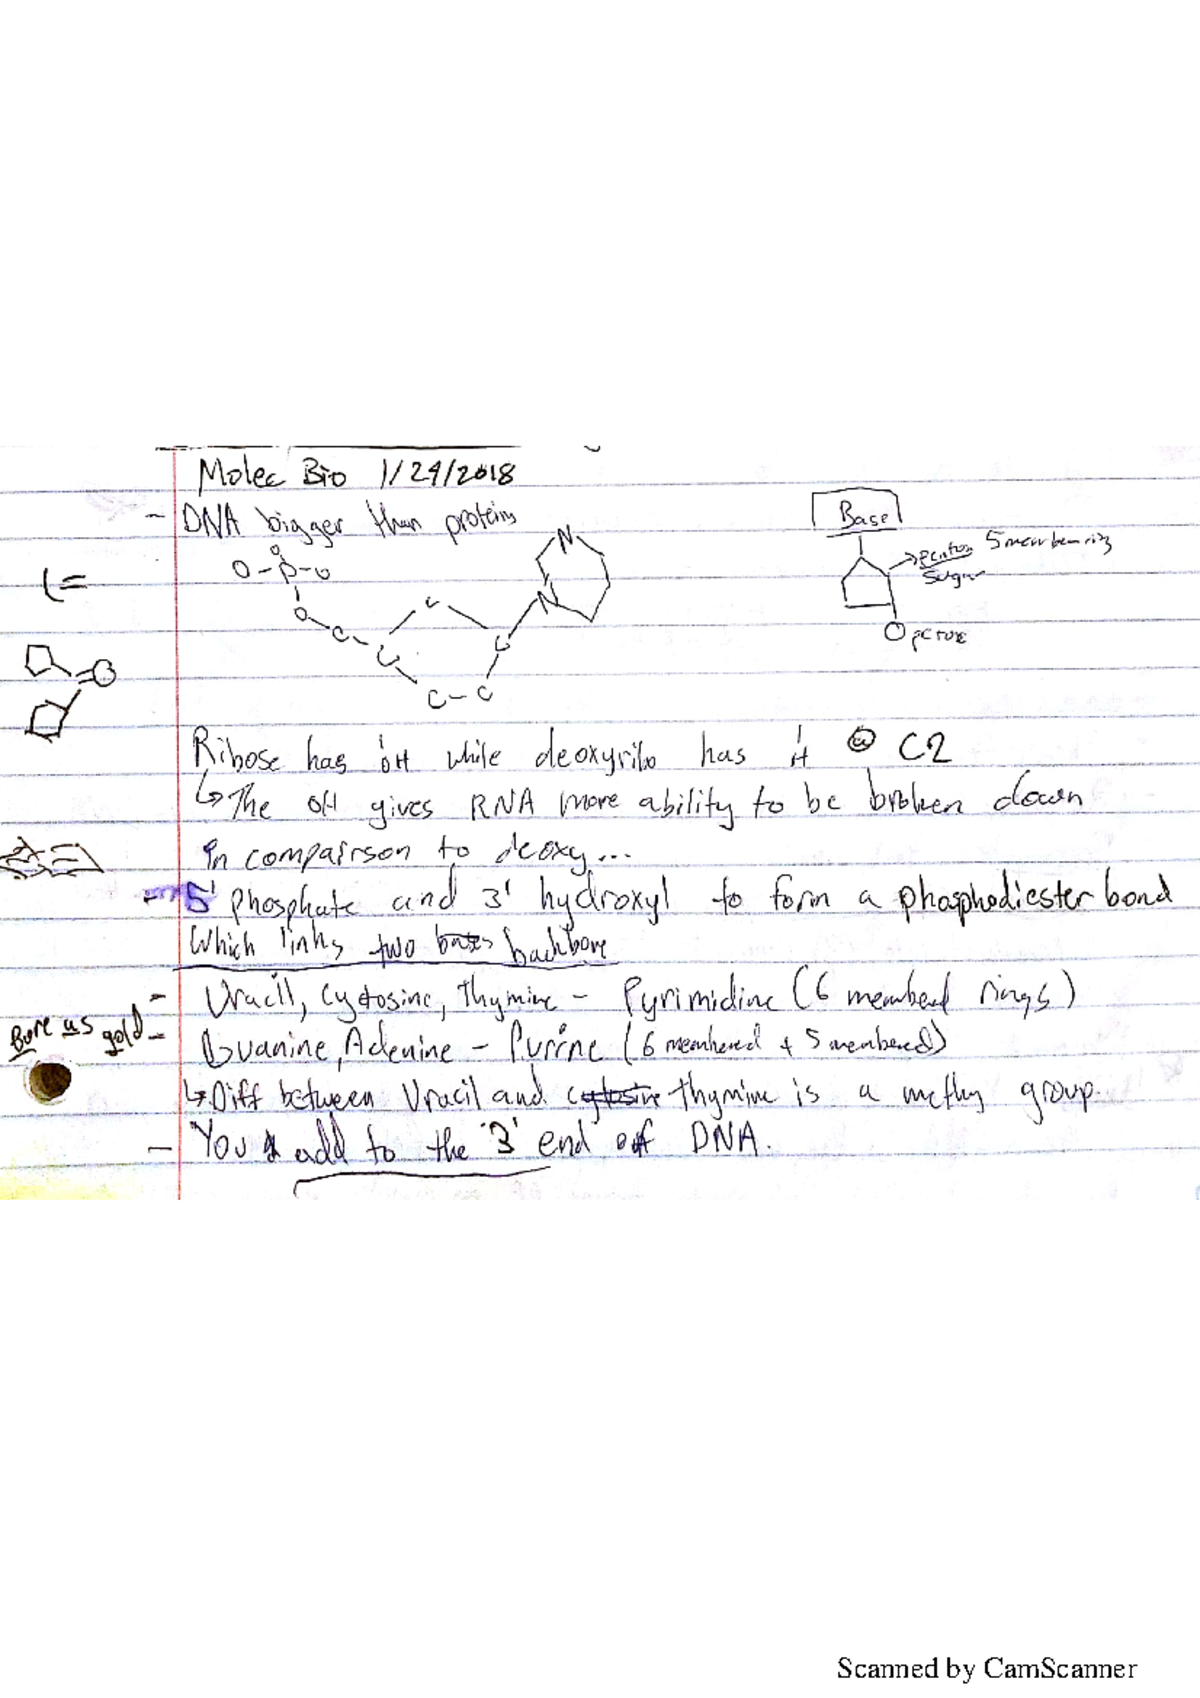 Molec Bio 1/29/2018
- DNA bigger than proteins
Base
5 member ring
Sugar
O
O-P-O
O
C
C
C
C-C
N
N
Ribose has OH while deoxyribo has H @ C2
↳ The OH gives RNA more ability to be broken down
in compairson to deoxy...
- 5' phosphate and 3' hydroxyl to form a phosphodiester bond
which links two bases backbone
- Uracil, Cytosine, Thymine - Pyrimidine (6 membered rings)
Pure as gold
- Guanine, Adenine - Purine (6 membered + 5 membered)
↳ Diff between Uracil and cytosine thymine is a methy group.
- You add to the 3' end of DNA.
Scanned by CamScanner